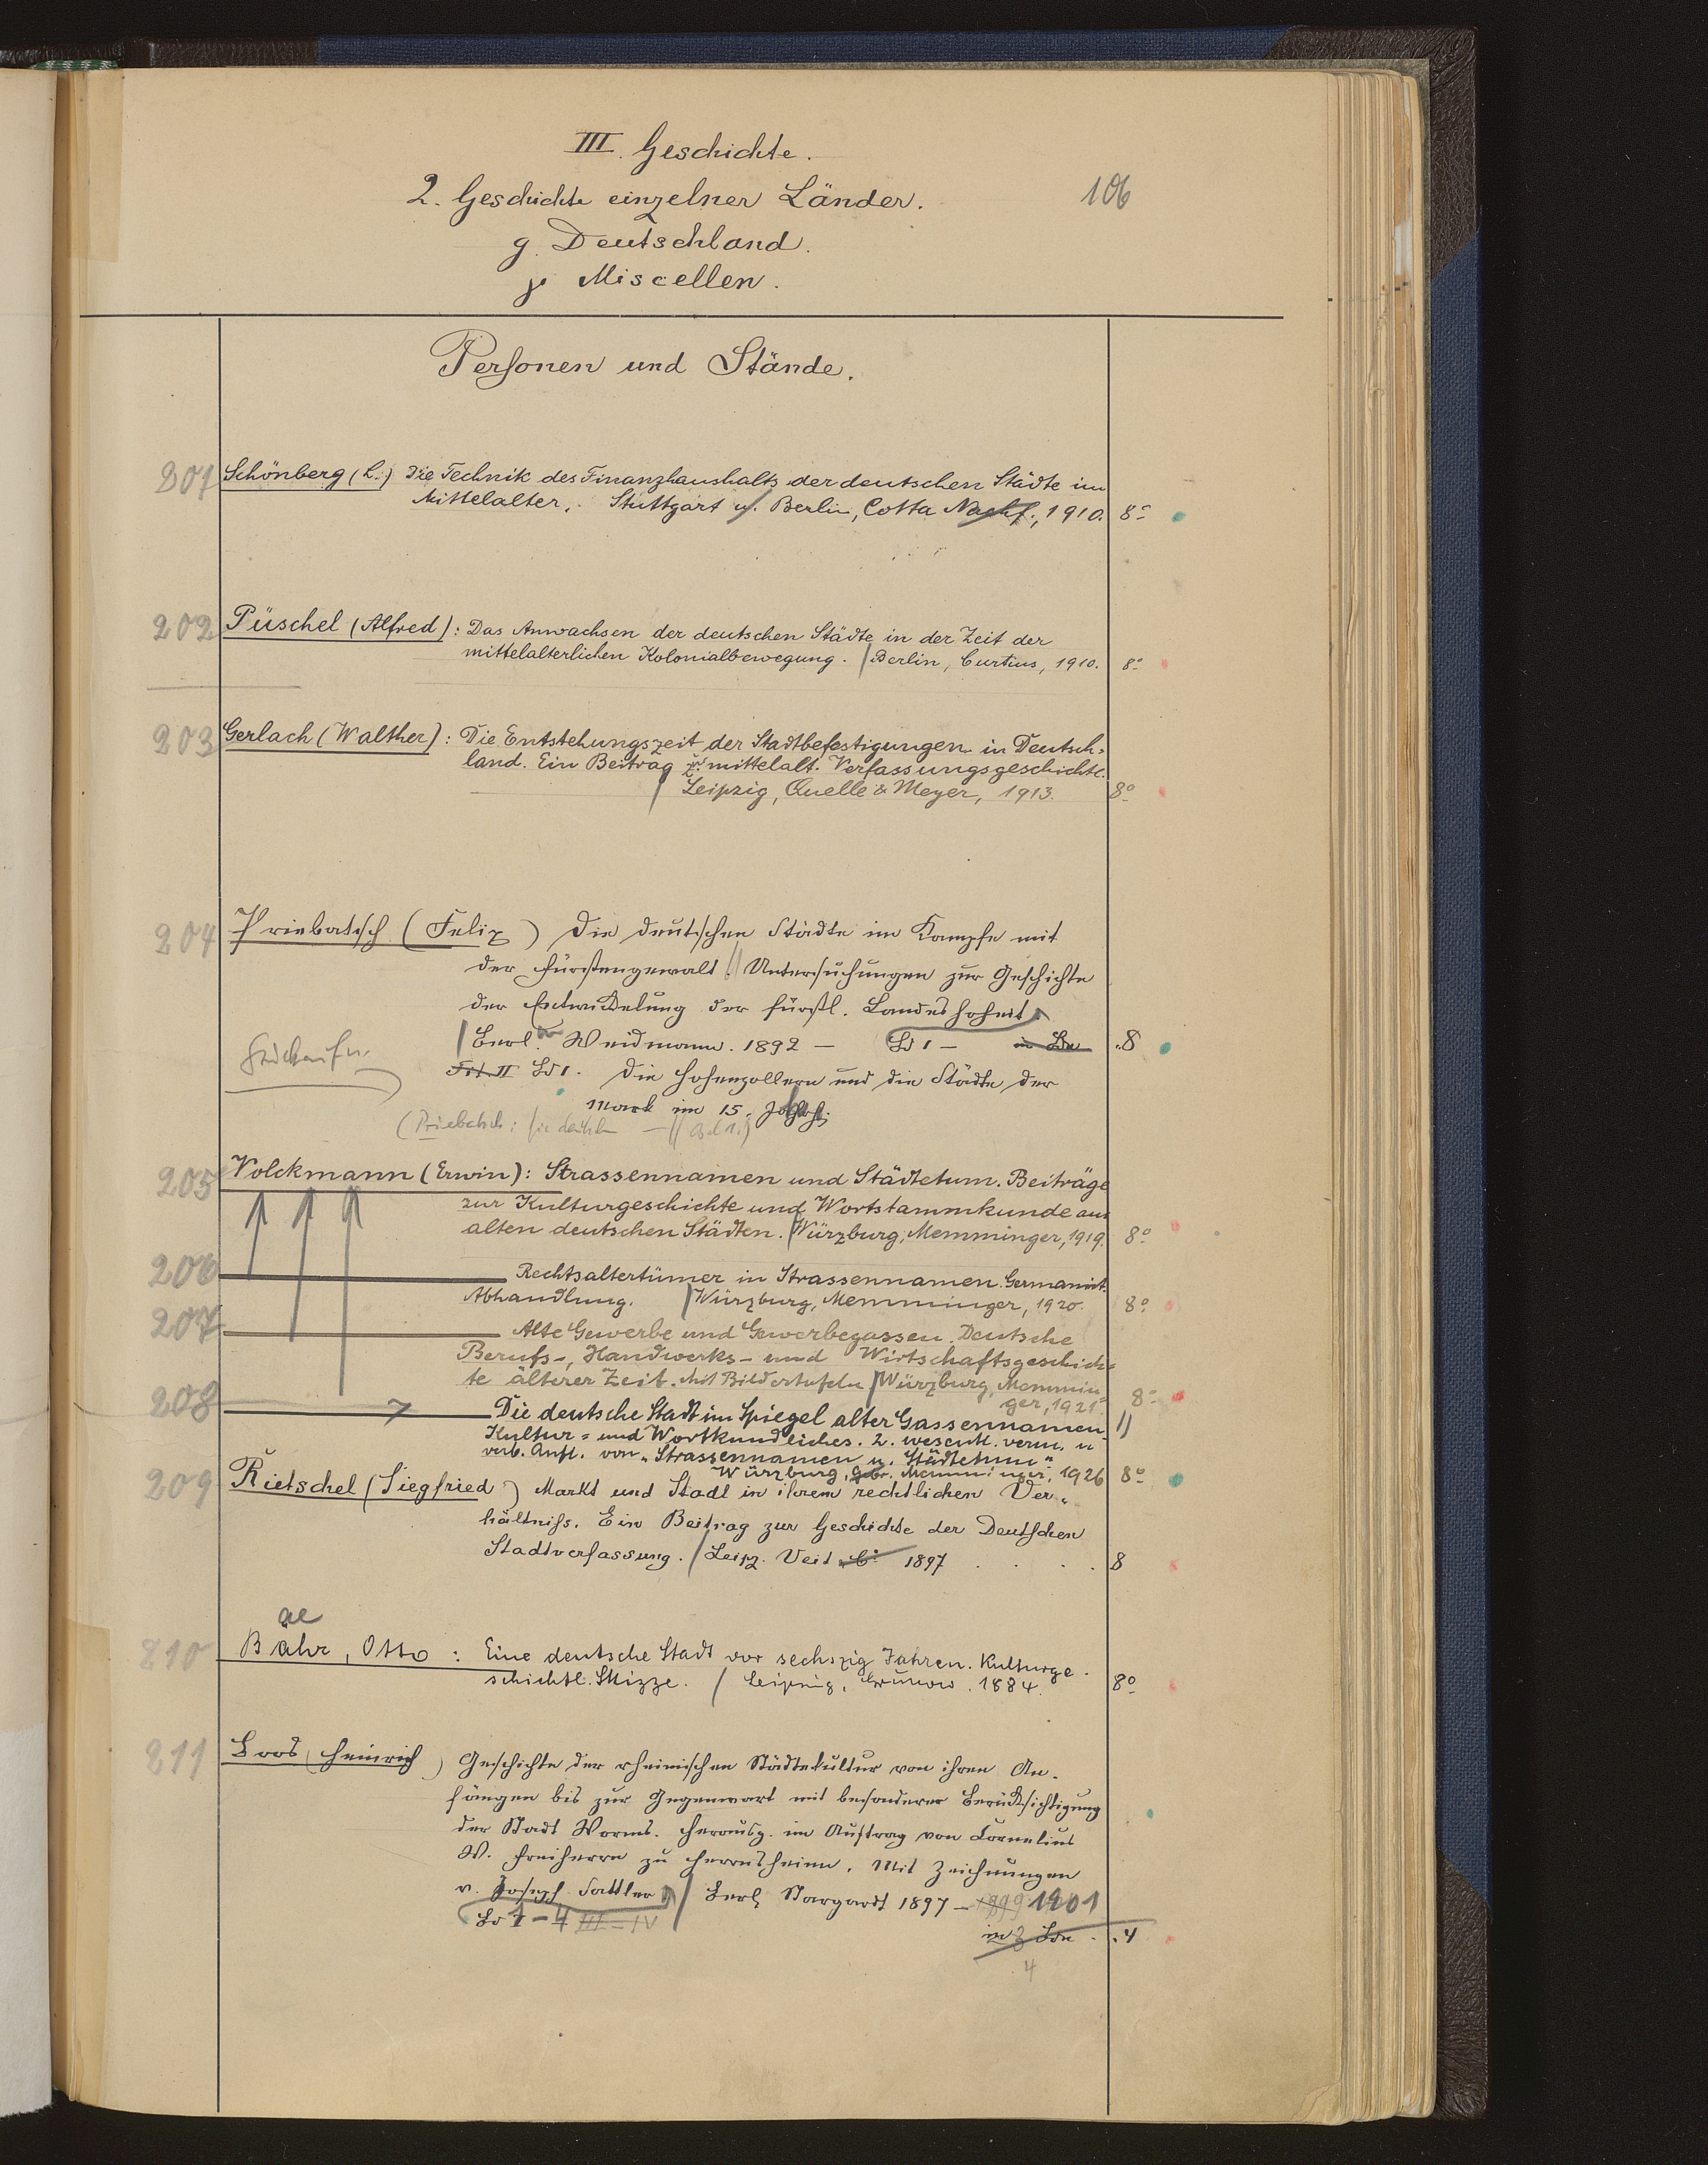 III. Geschichte.
2. Geschichte einzelner Länder.
106
g. Deutschland.
γ Miscellen.
Personen und Stände.
201 Schönberg (L.) Die Technik des Finanzhaushalts der deutschen Städte im
Mittelalter. Stuttgart u. Berlin, Cotta Nachf., 1910. 8°
202 Püschel (Alfred): Das Anwachsen der deutschen Städte in der Zeit der
mittelalterlichen Kolonialbewegung. / Berlin, Curtius, 1910. 8°
203 Gerlach (Walther): Die Entstehungszeit der Stadtbefestigungen in Deutsch=
land. Ein Beitrag z. mittelalt. Verfassungsgeschichte.
/ Leipzig, Quelle & Meyer, 1913. 8°
204 Priebatsch (Felix) Die deutschen Städte im Kampfe mit
der Fürstengewalt. // Untersuchungen zur Geschichte
der Entwickelung der fürstl. Landeshoheit
/ Berl. Weidmann. 1892 – Bd 1 – in Bdn .8
Bd 1. Die Hohenzollern und die Städte der
Mark im 15.
(Priebatsch: Die deutschen – // Bd 1.)
205 Volckmann (Erwin): Strassennamen und Städtetum. Beiträge
zur Kulturgeschichte und Wortstammkunde aus
alten deutschen Städten. / Würzburg, Memminger, 1919. 8°
206 Rechtsaltertümer in Strassennamen. Germanist.
Abhandlung. / Würzburg, Memminger, 1920. 8°
207 Alte Gewerbe und Gewerbegassen. Deutsche
Berufs-, Handwerks- und Wirtschaftsgeschich=
te älterer Zeit. Mit Bildertafeln / Würzburg, Memmin
ger, 1921 8°
208 Die deutsche Stadt im Spiegel alter Gassennamen.
Kultur= und Wortkundliches. 2. wesentl. verm. u
verb. Aufl. von "Strassennamen u. Städtetum"
Würzburg, Gebr. Memminger, 1926 8°
209 Rietschel (Siegfried) Markt und Stadt in ihrem rechtlichen Ver„
hältniss. Ein Beitrag zur Geschichte der Deutschen
Stadtverfassung. / Leipz. Veit & C° 1897 . . . . 8
ae
210 Bähr, Otto: Eine deutsche Stadt vor sechszig Jahren. Kulturge-
schichtl. Skizze. / Leipzig, Grunow. 1884. 8°
211 Boos (Heinrich) Geschichte der rheinischen Städtekultur von ihren An-
fängen bis zur Gegenwart mit besonderer Berücksichtigung
der Stadt Worms. Herausg. im Auftrag von Cornelius
W. Freiherrn zu Herrnsheim. Mit Zeichnungen
v. Joseph Sattler / Berl. Stargardt 1897 – 1899 1901
Bd 1–4 III–IV
in 3 Bdn . . 4
4